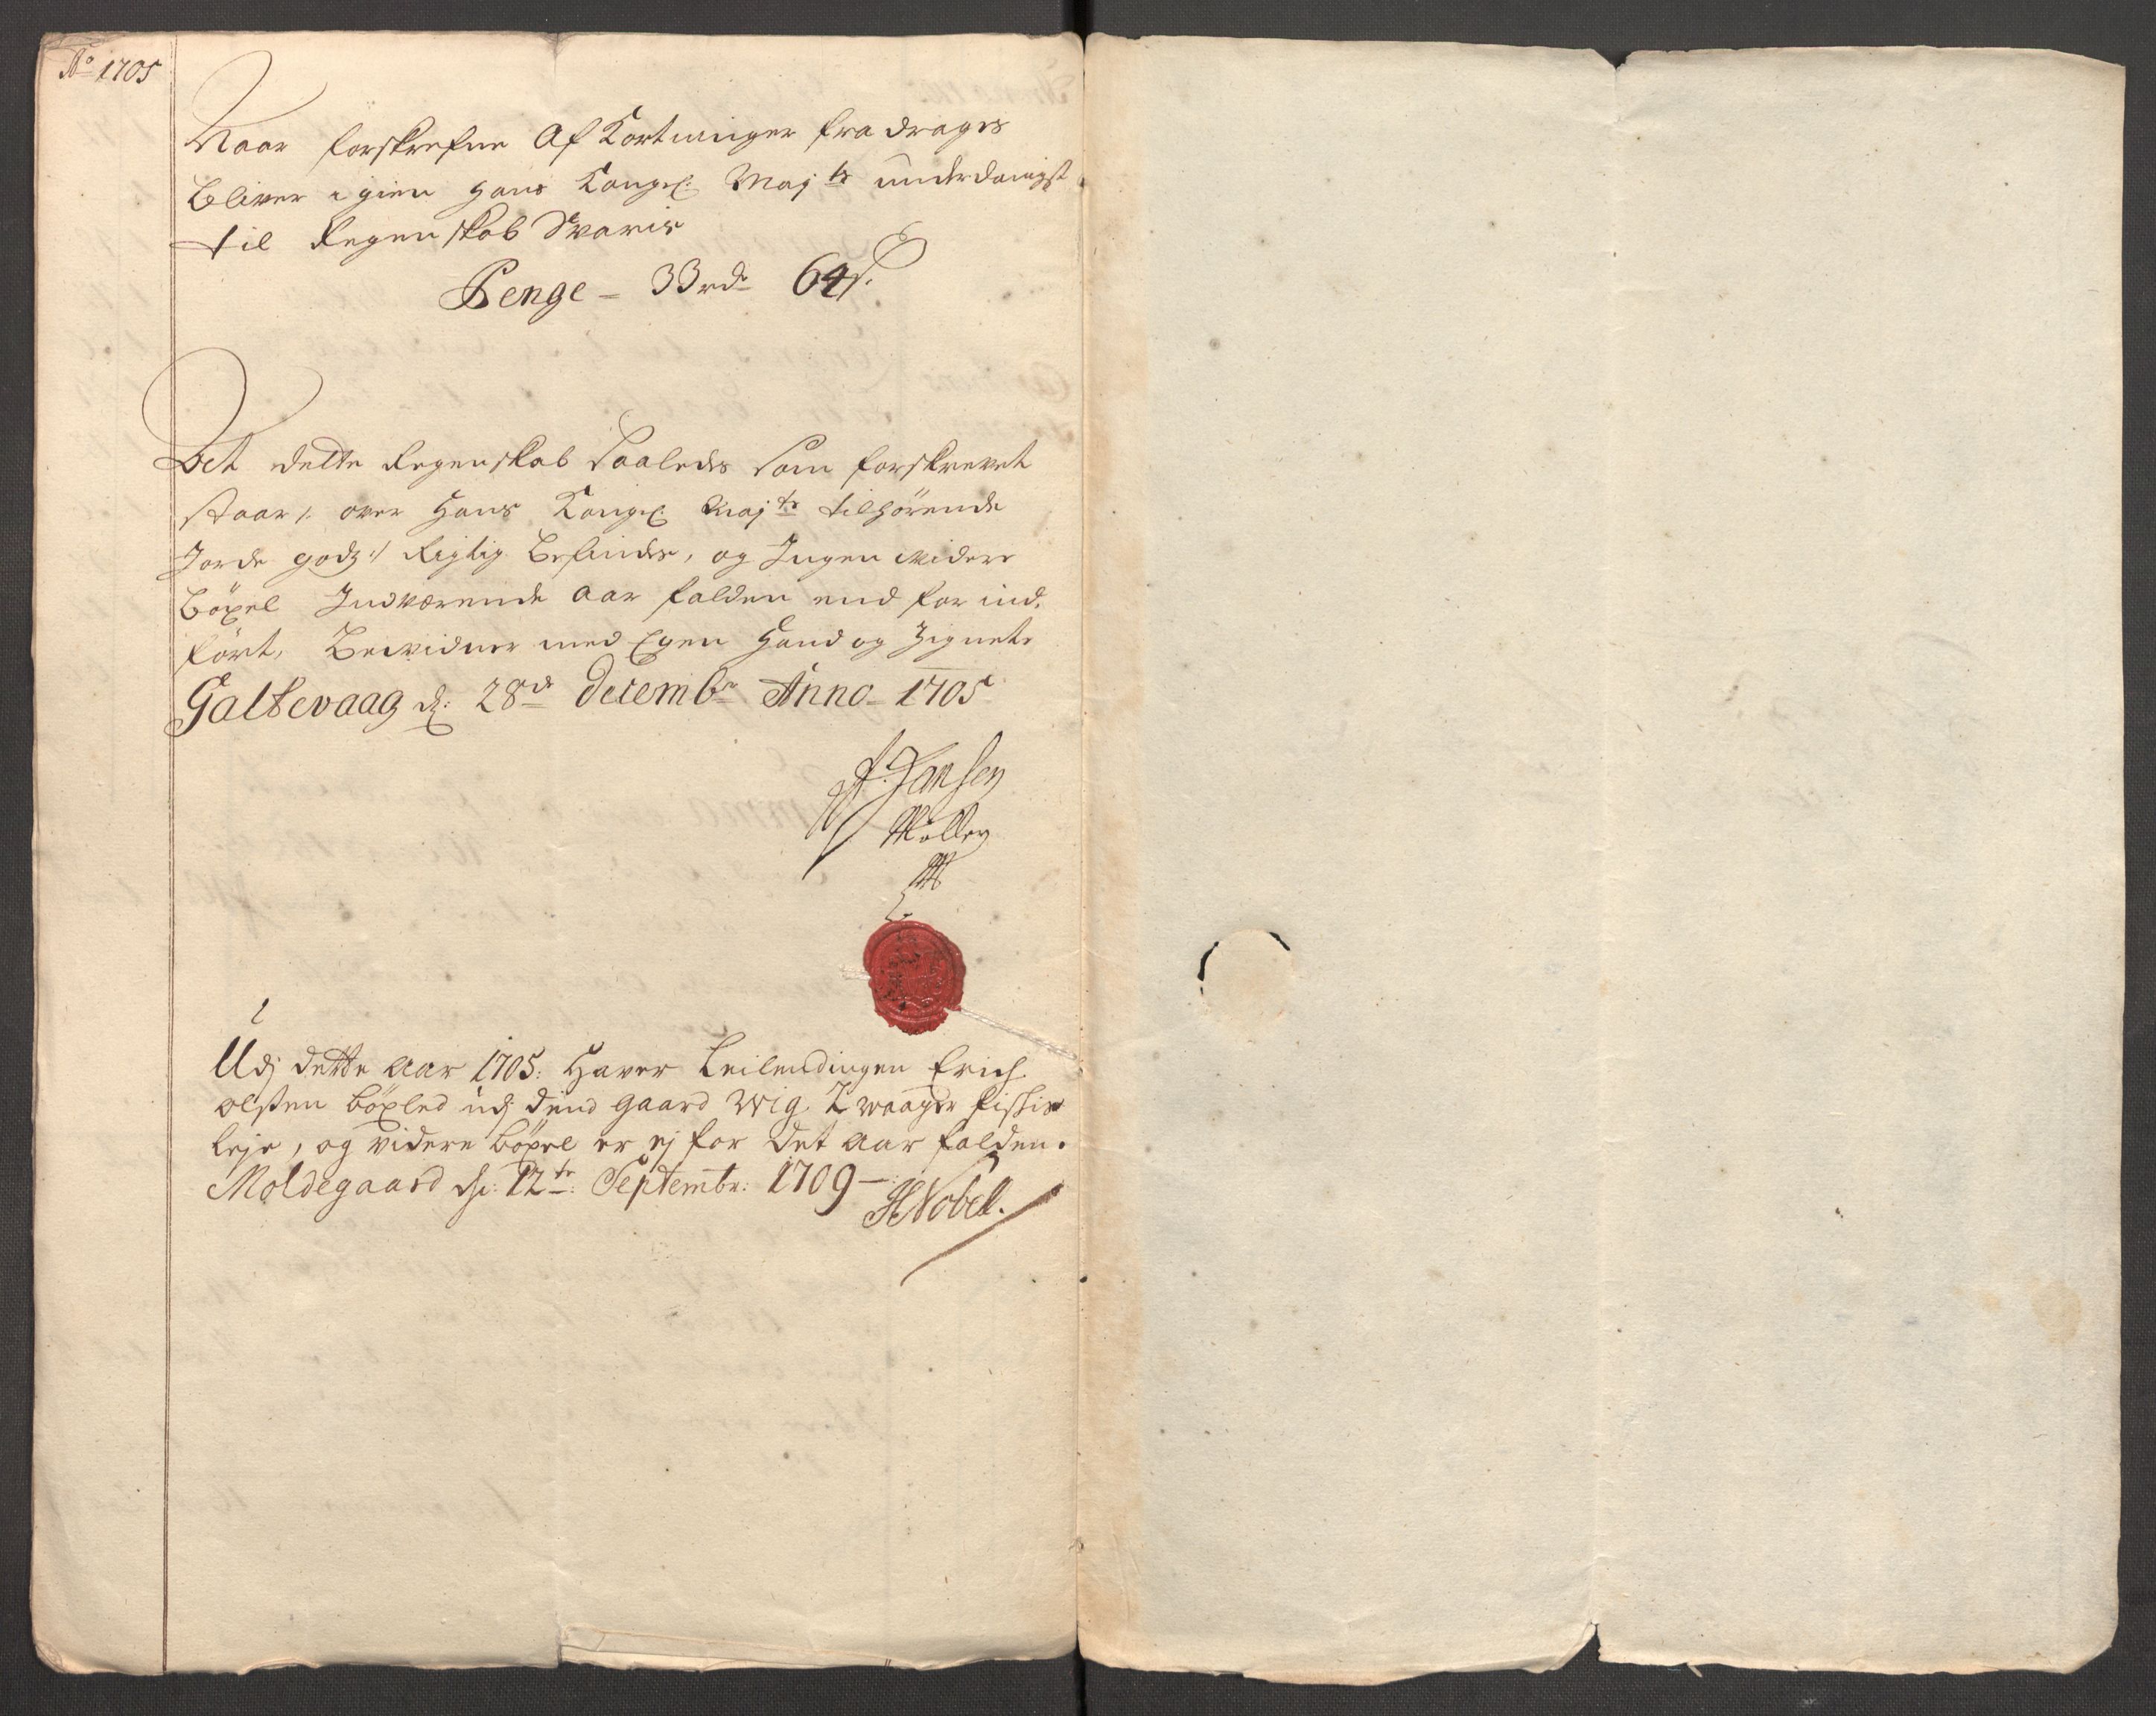 Ao 1705
Naar forskrefne Af Kortninger fra drages
bliver igien hans Kongl: Majts underdanigst
til Regenskab Svaris
Penge - 33 rd 64 s.
At dette Regenskab Saaledes Som forskrevet
staar /: over Hans Kongl: Majts tilhørende
Jorde godz :/ Rigtig befindes, og Ingen widere
Böxel Indværende Aar falden end for ind.
fört, Bewidner med Egen Hand og Zignete
Galtevaag d: 28de Decembr Anno - 1705
Jansen
Møller
Udj dette Aar 1705: Haver Leilendingen Erich
olsten böxled udj dend gaard Wig waager
leje, og videre böxel er ej for det Aar falden.
Moldegaard d: 12te: Septembr: 1709 -
HNobel.